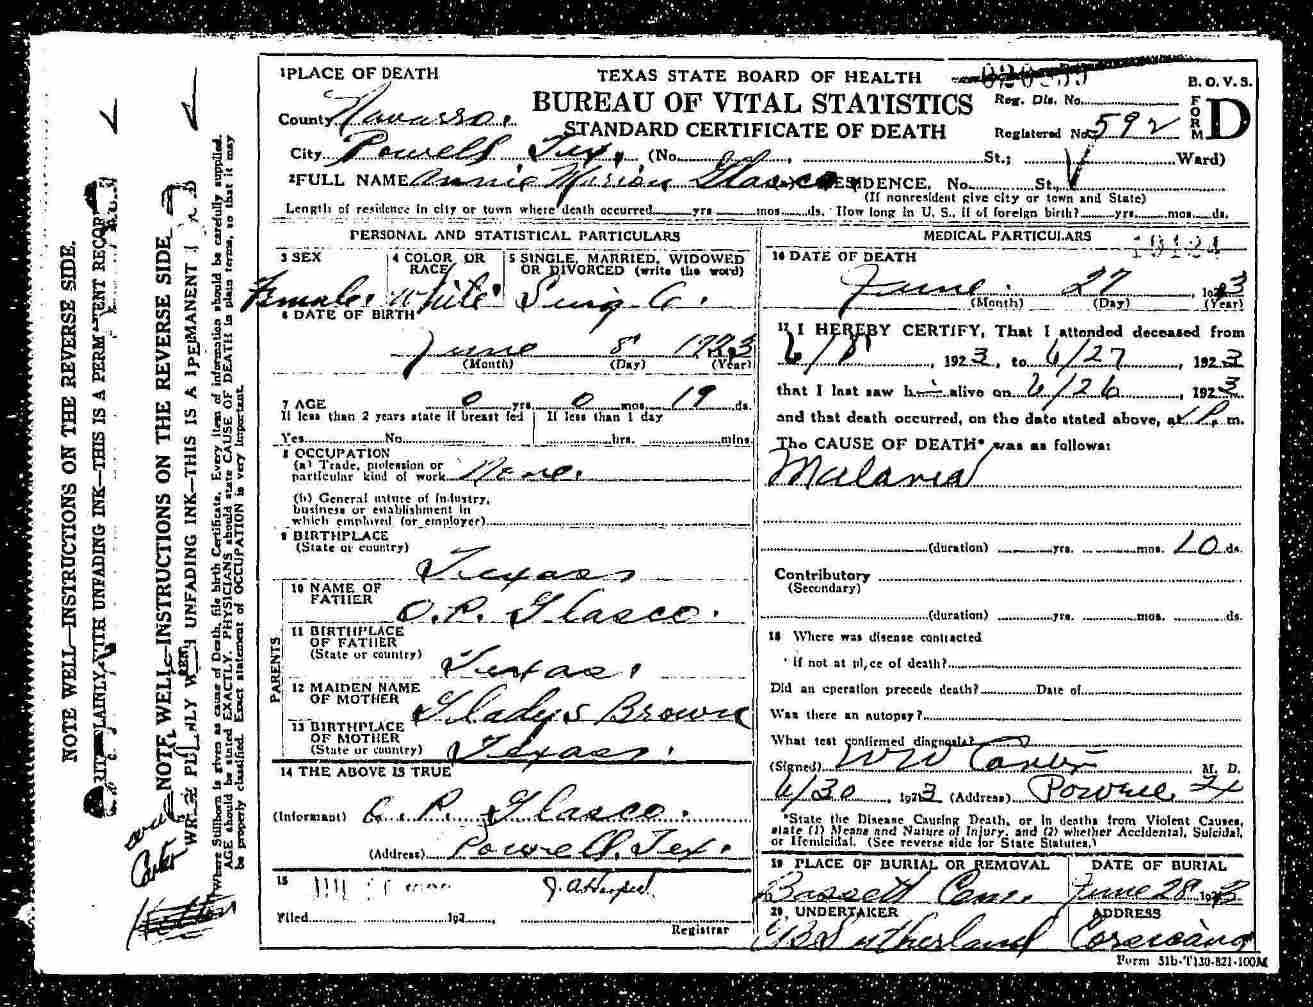 1 PLACE OF DEATH
TEXAS STATE BOARD OF HEALTH
B. O. V. S.
County Navarro.
BUREAU OF VITAL STATISTICS
Reg. Dis. No.
FORM D
STANDARD CERTIFICATE OF DEATH
Registered No. 592
City Powell Tex. (No. , St.; Ward)
2 FULL NAME Annie Marion Glasco RESIDENCE. No. St.,
(If nonresident give city or town and State)
Length of residence in city or town where death occurred yrs mos. ds. How long in U. S., if of foreign birth? yrs. mos. ds.
PERSONAL AND STATISTICAL PARTICULARS
3 SEX
Female.
4 COLOR OR RACE
White.
5 SINGLE, MARRIED, WIDOWED
OR DIVORCED (write the word)
6 DATE OF BIRTH
June 8 1923
(Month) (Day) (Year)
7 AGE 0 yrs. 0 mos. 19 ds.
If less than 2 years state if breast fed
If less than 1 day
Yes No hrs. mins.
8 OCCUPATION
(a) Trade, profession or
particular kind of work None.
(b) General nature of Industry,
business or establishment in
which employed (or employer)
9 BIRTHPLACE
(State or country)
Texas
PARENTS
10 NAME OF
FATHER
O. P. Glasco.
11 BIRTHPLACE
OF FATHER
(State or country)
Texas.
12 MAIDEN NAME
OF MOTHER
Gladys Brown
13 BIRTHPLACE
OF MOTHER
(State or country)
Texas.
14 THE ABOVE IS TRUE
(Informant) O. P. Glasco.
(Address) Powell, Tex.
15
Filed 192
Registrar
MEDICAL PARTICULARS
16 DATE OF DEATH
June. 27 1923
(Month) (Day) (Year)
17 I HEREBY CERTIFY, That I attended deceased from
6/8 , 1923, to 6/27 , 1923
that I last saw h alive on 6/26 , 1923
and that death occurred, on the date stated above, at P. m.
The CAUSE OF DEATH* was as follows:
Malaria
(duration) yrs. mos. 10 ds.
Contributory
(Secondary)
(duration) yrs. mos. ds.
18 Where was disease contracted
if not at place of death?
Did an operation precede death? Date of
Was there an autopsy?
What test confirmed diagnosis?
(Signed) WW Carter M. D.
6/30 , 1923 (Address) Powell Tx
*State the Disease Causing Death, or in deaths from Violent Causes,
state (1) Means and Nature of Injury, and (2) whether Accidental, Suicidal,
or Homicidal. (See reverse side for State Statutes.)
19 PLACE OF BURIAL OR REMOVAL
Bassett Cem.
DATE OF BURIAL
June 28 1923
20 UNDERTAKER
Sutherland
ADDRESS
Corsicana
Form 51b-T130-821-100M
NOTE WELL—INSTRUCTIONS ON THE REVERSE SIDE.
PLAINLY WITH UNFADING INK—THIS IS A PERMANENT RECORD
NOTE WELL—INSTRUCTIONS ON THE REVERSE SIDE
WRITE PLAINLY WITH UNFADING INK—THIS IS A PERMANENT
Where Stillborn is given as cause of Death, file birth Certificate. Every item of information should be carefully supplied.
AGE should be stated EXACTLY. PHYSICIANS should state CAUSE OF DEATH in plain terms, so that it may
be properly classified. Exact statement of OCCUPATION is very important.
Carter